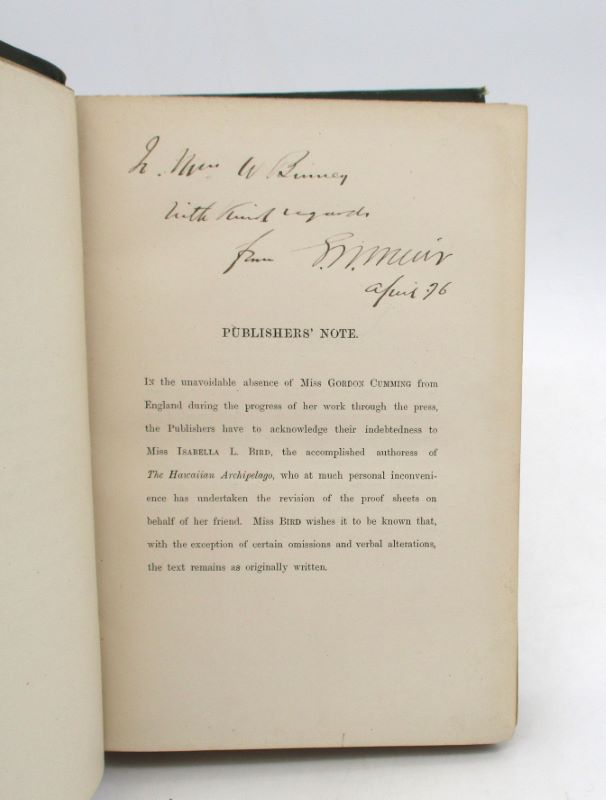 W. Binney
with kind regards
from Muir
April 76
PUBLISHERS' NOTE.
IN the unavoidable absence of Miss GORDON CUMMING from
England during the progress of her work through the press,
the Publishers have to acknowledge their indebtedness to
Miss ISABELLA L. BIRD, the accomplished authoress of
The Hawaiian Archipelago, who at much personal inconveni-
ence has undertaken the revision of the proof sheets on
behalf of her friend. Miss BIRD wishes it to be known that,
with the exception of certain omissions and verbal alterations,
the text remains as originally written.